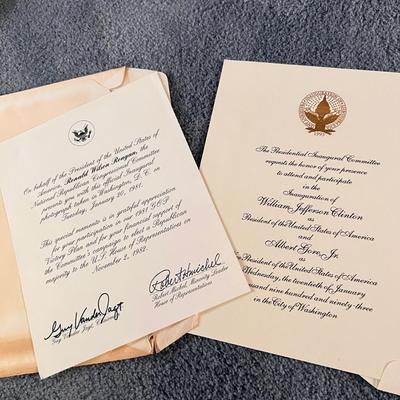 On behalf of the President of the United States of
America, Ronald Wilson Reagan, the
National Republican Congressional Committee
presents you with this official Inaugural
photograph taken in Washington, D.C. on
Tuesday, January 20, 1981.
This special memento is in grateful appreciation
for your participation in our 1981 GOP
Victory Plan and for your financial support of
the Committee's campaign to elect a Republican
majority to the U.S. House of Representatives on
November 2, 1982.
Guy VanderJagt
Guy Vander Jagt,
Robert H. Michel
Robert Michel, Minority Leader
House of Representatives
1993
The Presidential Inaugural Committee
requests the honor of your presence
to attend and participate
in the
Inauguration of
William Jefferson Clinton
as
President of the United States of America
and
Albert Gore, Jr.
as
President of the United States of America
Wednesday, the twentieth of January
thousand nine hundred and ninety-three
in the City of Washington